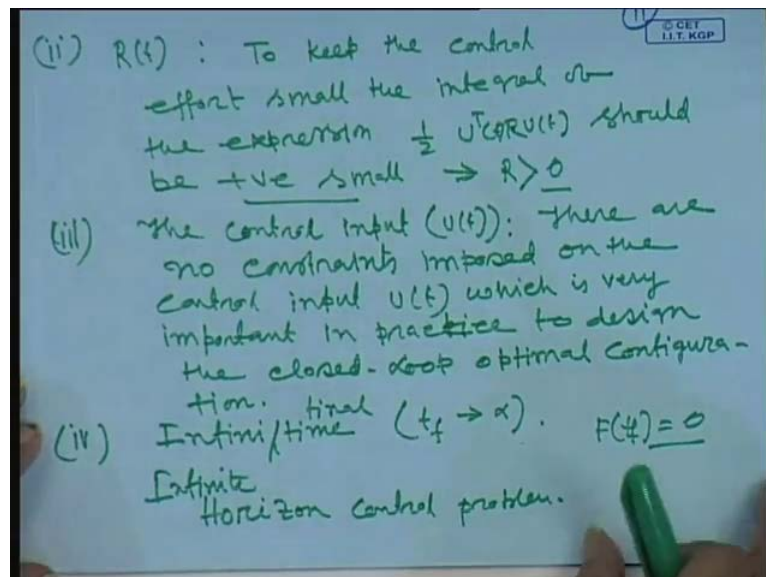 11
© CET
I.I.T. KGP
(ii) R(t) : To keep the control
effort small the integral of
the expression 1/2 Uᵀ(t)RU(t) should
be +ve small → R>0
(iii) The control input (U(t)): There are
no constraints imposed on the
control input U(t) which is very
important in practice to design
the closed-loop optimal configura-
tion.
(iv) Infini/time final (t_f → α). F(t_f) = 0
Infinite
Horizon control problem.